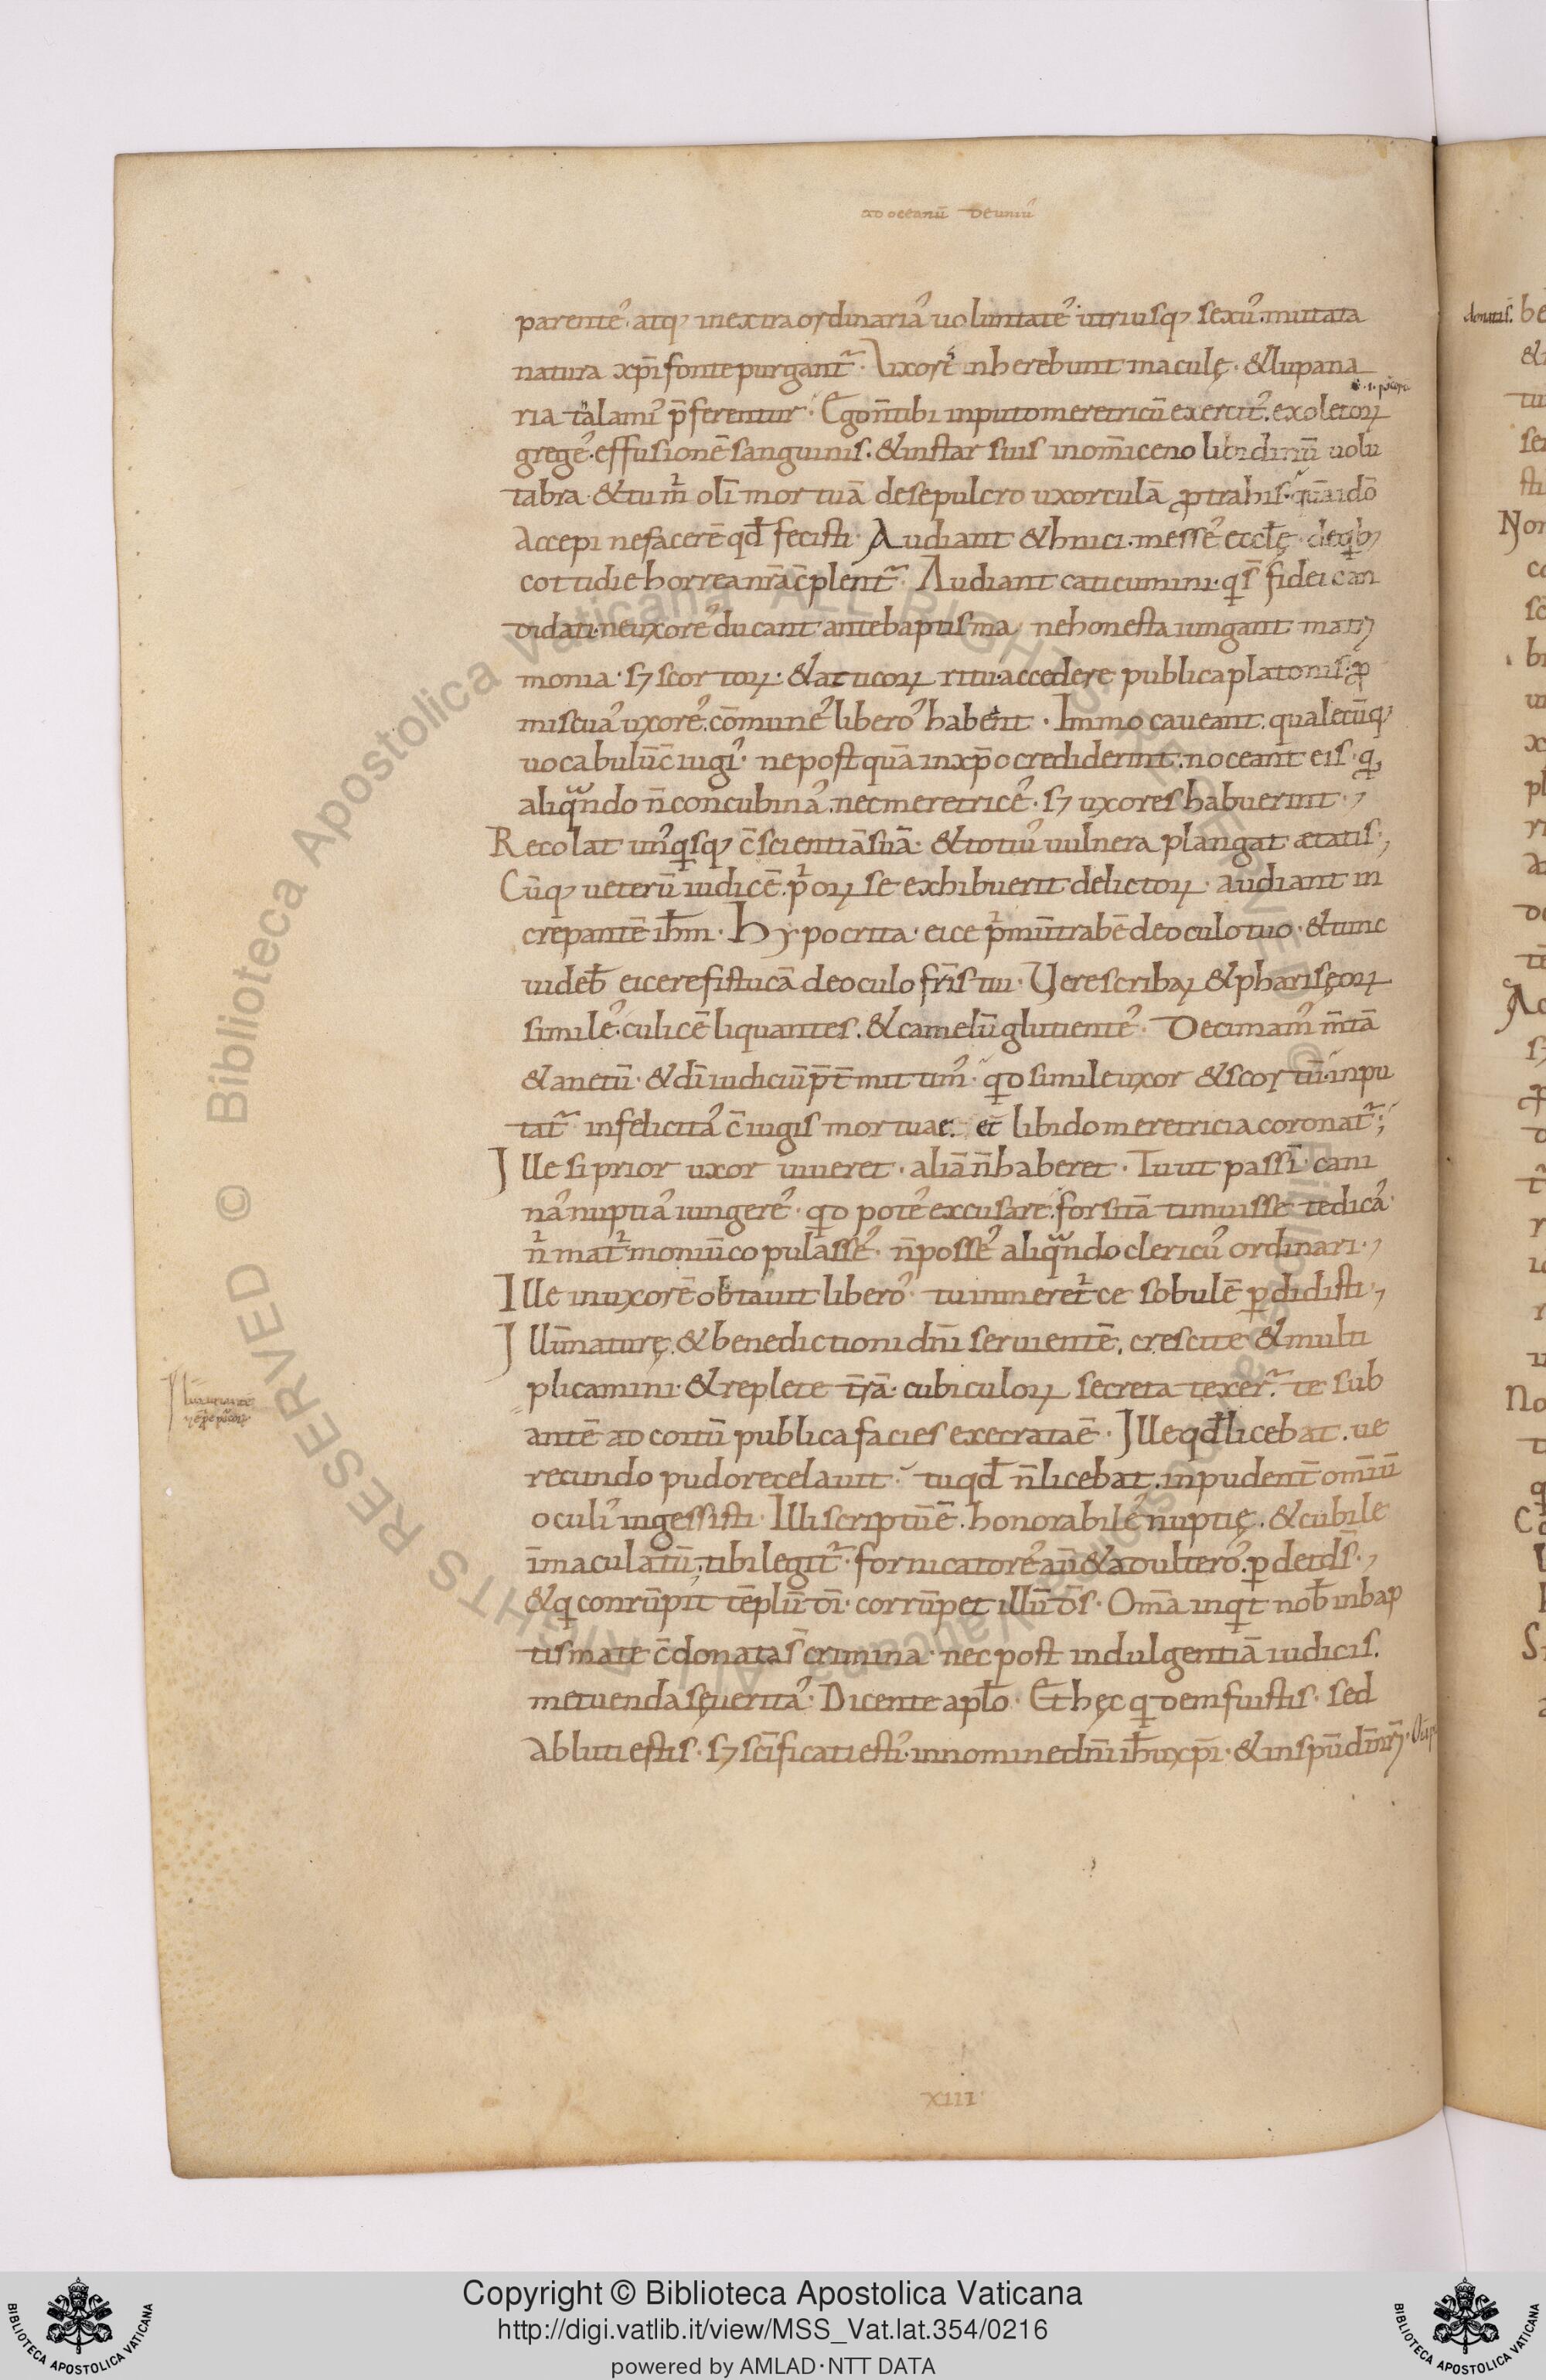 ad oceanū de uniu᾽
parente᾽ atq; in extraordinaria᾽ uoluntate᾽ utriusq; sexu᾽ mutata
natura xp̄i fonte purgant᷑. Uxore᾽ inherebunt maculę. & lupana
ria talami᾽ p̄ferentur. Ego n̄ tibi inputo meretricū exercit᾽. exoletoꝝ
grege᾽. effusionē sanguinis. & instar suis in om̄i ceno libidinū uolu
tabra. & tu m̄ olī mortuā de sepulcro uxorculā ꝓtrahis. quā idō
accepi ne facerē qđ fecisti. Audiant & hnici. messe᾽ eccłę. de qb;
cottidie horrea nrā c̄plent᷑. Audiant caticumini. qi s̄ fidei can
didati. ne uxore᾽ ducant ante baptisma, ne honesta iungant matri
monia. s; scortoꝝ. & atticoꝝ ritu. accedere publica platonis. ꝓ
miscua᾽ uxore᾽. cōmune᾽ libero᾽ habent. Immo caueant. qualecūq;
uocabulū c̄iugi᾽. ne postquā in xp̄o crediderint. noceant eis. q
aliqndo n̄ concubina᾽. nec meretrice᾽. s; uxores habuerint.
Recolat un᾽qsq; c̄scientiā suā. & totiu᾽ uulnera plangat ætatis;
Cūq; ueterū iudicē. p̄oꝝ se exhibuerit delictoꝝ. audiant in
crepantē ih̄m. Hypocrita. eice p̄mū trabē de oculo tuo. & tunc
uideb̄ eicere fistucā de oculo fr̄is tui. Vere scribaꝝ & phariseoꝝ
simile᾽. culicē liquantes. & camelū glutiente᾽. Decimam᾽ m̄tā
& anetū. & dī iudiciū p̄t̄mittim᾽. qd simile uxor & scortū. inpu
tat᷑ infelicita᾽ c̄iugis mortuae. et libido meretricia coronat᷑;
Ille si prior uxor uiueret. aliā n̄ haberet. Tu ut passī. cani
na᾽ nuptia᾽ iungere᾽. qd pote᾽ excusare. forsitā timuisse te dica᾽
n̄ matrimoniū copulasse᾽. n̄ posse᾽ aliqndo clericu᾽ ordinari.
Ille in uxorē obtauit libero᾽. tu in meretrice sobulē ꝑdidisti;
Illū naturę. & benedictioni dn̄i seruientē. crescite & multi
plicamini. & replete t̄rā. cubiculoꝝ secreta texer᷑. te sub
antē ad coitū publica facies execrata ē. Ille qđ licebat. ue
recundo pudore celauit. tu qđ n̄ licebat. inpudent̄ om̄iū
oculi᾽ ingessisti. Illi scriptū ē. honorabile᾽ nuptię. & cubile
īmaculatū. tibi legit᷑. fornicatore᾽ aū & adultero᾽. ꝑdet ds̄.
& q conrūpit tēplū dī. corrūpet illū ds̄. Om̄a inqt nob̄ in bap
tismate c̄donata s̄ crimina. nec post indulgentiā iudicis.
metuenda seuerita᾽. Dicente apło. Et hęc qdem fuistis. sed
abluti estis. s; sc̄ificati esti᾽. in nomine dn̄i ih̄u xp̄i. & in spū dī nr̄i.
XIII
Copyright © Biblioteca Apostolica Vaticana
http://digi.vatlib.it/view/MSS_Vat.lat.354/0216
powered by AMLAD·NTT DATA